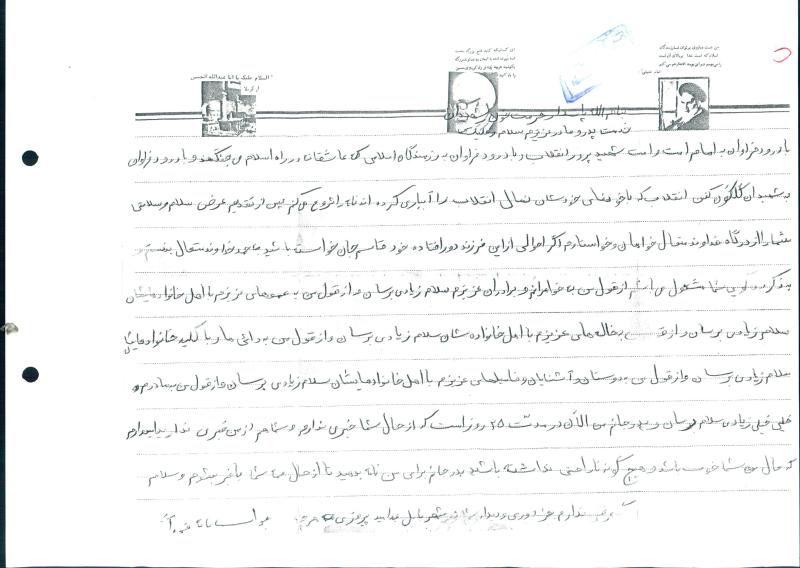 السلام علیک یا ابا عبدالله الحسین
از کربلا
خدمت پدر و مادر عزیزم سلام علیکم
با درود فراوان به امام امت و امت شهید پرور انقلاب و با درود فراوان به رزمندگان اسلامی که عاشقانه در راه اسلام می جنگند و با درود فراوان
به شهیدان گلگون کفن انقلاب که با خون خودشان نهال انقلاب را آبیاری کرده اند نامه را شروع می کنم پس از تقدیم عرض سلام و سلامتی
شما را از درگاه خداوند متعال خواهان و خواستارم اگر احوالی از این فرزند دور افتاده خود قاسم جان خواسته باشید بحمد خداوند متعال
به دعاگویی شما مشغول می باشم از قول من به خواهرانم و برادران عزیزم سلام زیادی برسان و از قول من به عموهای عزیزم با اهل خانواده هایشان
سلام زیادی برسان و از قول من به خاله های عزیزم با اهل خانواده شان سلام زیادی برسان و از قول من به دائی ها با کلیه خانواده هایشان
سلام زیادی برسان و از قول من به دوستان و آشنایان و فامیلهای عزیزم با اهل خانواده هایشان سلام زیادی برسان و از قول من به مادرم
خیلی خیلی زیادی سلام برسان و پدر جانم من الان در مدت ۲۵ روز است که از حال شما خبری ندارم و شما هم از من خبری ندارید امیدوارم
که حال شما خوب باشد و هیچ گونه ناراحتی نداشته باشید پدر جانم برای من نامه بدهید تا از حال شما با خبر بشوم و سلام
ندارم جز دوری و دیدار شما